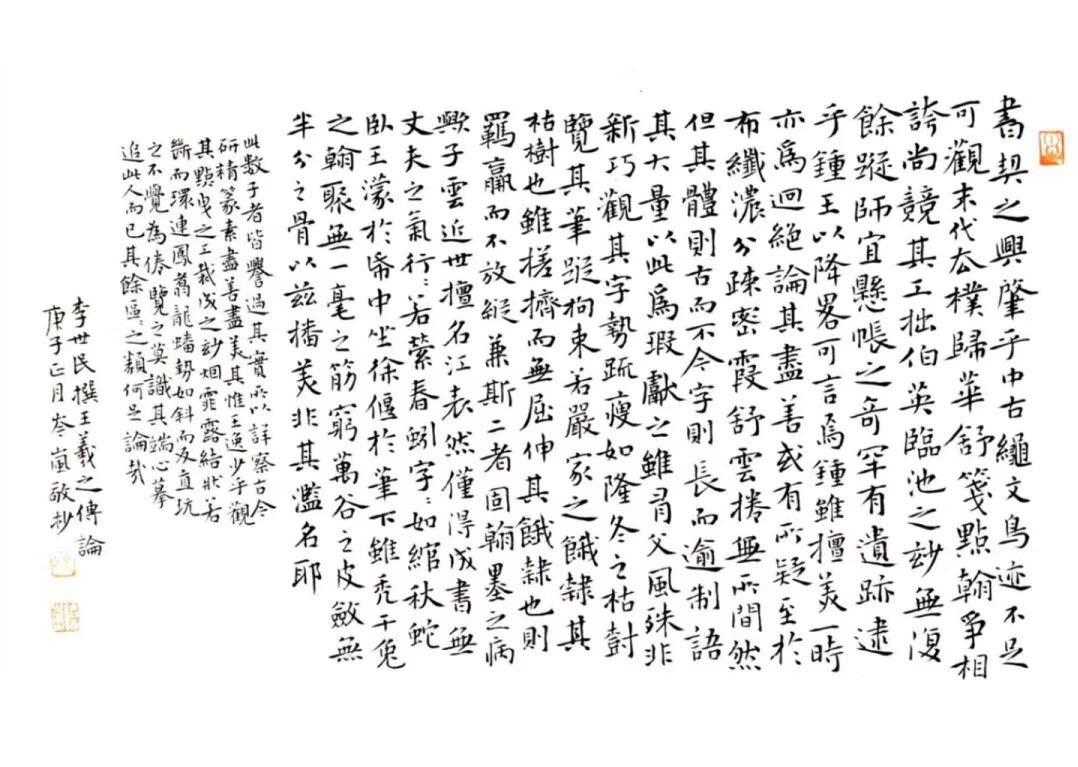 書契之興肇乎中古繩文鳥迹不足
可觀末代去樸歸華舒箋點翰爭相
誇尚競其工拙伯英臨池之妙無復
餘蹤師宜懸帳之奇罕有遺跡逮
乎鍾王以降畧可言焉鍾雖擅美一時
亦爲迥絕論其盡善或有所疑至於
布纖濃分疎密霞舒雲捲無所間然
但其體則古而不今字則長而逾制語
其大量以此爲瑕獻之雖有父風殊非
新巧觀其字勢疏瘦如隆冬之枯樹
覽其筆蹤拘束若嚴家之餓隸其
枯樹也雖槎擠而無屈伸其餓隸也則
羈羸而不放縱兼斯二者固翰墨之病
歟子雲近世擅名江表然僅得成書無
丈夫之氣行〻若縈春蚓字〻如綰秋蛇
臥王濛於帋中坐徐偃於筆下雖禿千兔
之翰聚無一毫之筋窮萬谷之皮斂無
半分之骨以茲播美非其濫名耶
此數子者皆譽過其實所以詳察古今
研精篆素盡善盡美其惟王逸少乎觀
其點曳之工裁成之妙烟霏露結狀若
斷而環連鳳翥龍蟠勢如斜而反直玩
之不覺為倦覽之莫識其端心摹
追此人而已其餘區〻之類何足論哉
李世民撰王羲之傳論
庚子正月岑嵐敬抄